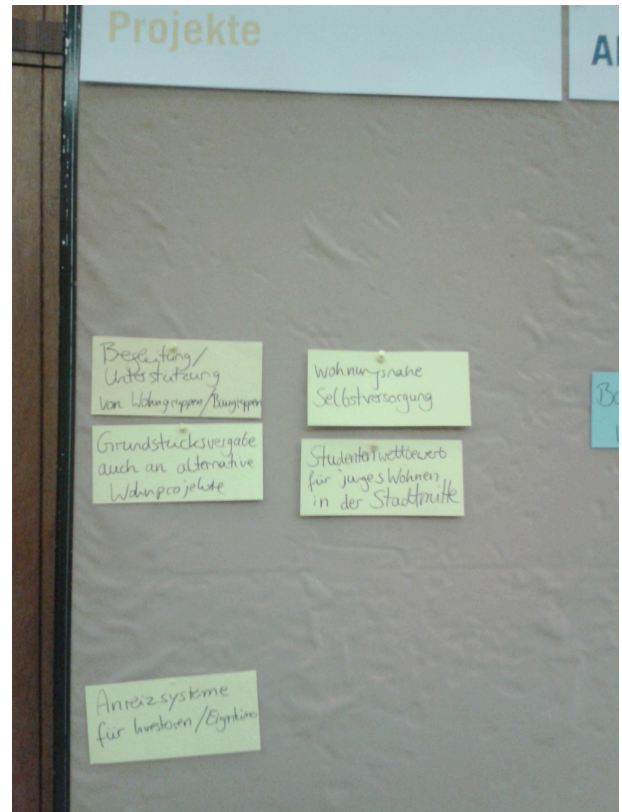 Projekte
Begleitung/
Unterstützung
von Wohngruppen/Baugruppen
Grundstücksvergabe
auch an alternative
Wohnprojekte
wohnungsnahe
Selbstversorgung
Studentenwettbewerb
für junges Wohnen
in der Stadtmitte
Anreizsysteme
für Investoren/Eigentümer